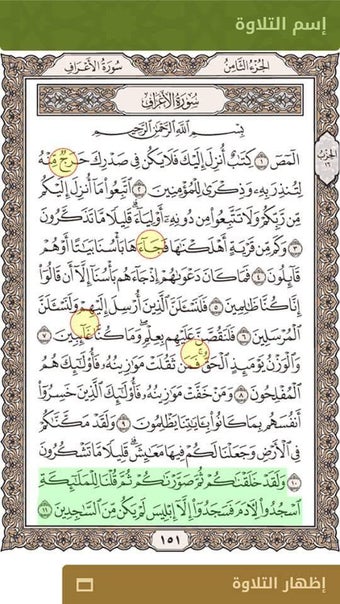 إسم التلاوة
سُورَةُ الأَعْرَافِ
الجُزْءُ الثَّامِنُ
سُورَةُ الأَعْرَافِ
بِسْمِ اللَّهِ الرَّحْمَٰنِ الرَّحِيمِ
الحزب
١٦
الٓمٓصٓ ١ كِتَٰبٌ أُنزِلَ إِلَيْكَ فَلَا يَكُن فِي صَدْرِكَ حَرَجٌ مِّنْهُ
لِتُنذِرَ بِهِۦ وَذِكْرَىٰ لِلْمُؤْمِنِينَ ٢ ٱتَّبِعُوا۟ مَآ أُنزِلَ إِلَيْكُم
مِّن رَّبِّكُمْ وَلَا تَتَّبِعُوا۟ مِن دُونِهِۦٓ أَوْلِيَآءَ ۗ قَلِيلًا مَّا تَذَكَّرُونَ
٣ وَكَم مِّن قَرْيَةٍ أَهْلَكْنَٰهَا فَجَآءَهَا بَأْسُنَا بَيَٰتًا أَوْ هُمْ
قَآئِلُونَ ٤ فَمَا كَانَ دَعْوَىٰهُمْ إِذْ جَآءَهُم بَأْسُنَآ إِلَّآ أَن قَالُوٓا۟
إِنَّا كُنَّا ظَٰلِمِينَ ٥ فَلَنَسْـَٔلَنَّ ٱلَّذِينَ أُرْسِلَ إِلَيْهِمْ وَلَنَسْـَٔلَنَّ
ٱلْمُرْسَلِينَ ٦ فَلَنَقُصَّنَّ عَلَيْهِم بِعِلْمٍ ۖ وَمَا كُنَّا غَآئِبِينَ ٧
وَٱلْوَزْنُ يَوْمَئِذٍ ٱلْحَقُّ ۚ فَمَن ثَقُلَتْ مَوَٰزِينُهُۥ فَأُو۟لَٰٓئِكَ هُمُ
ٱلْمُفْلِحُونَ ٨ وَمَنْ خَفَّتْ مَوَٰزِينُهُۥ فَأُو۟لَٰٓئِكَ ٱلَّذِينَ خَسِرُوٓا۟
أَنفُسَهُم بِمَا كَانُوا۟ بِـَٔايَٰتِنَا يَظْلِمُونَ ٩ وَلَقَدْ مَكَّنَّٰكُمْ
فِي ٱلْأَرْضِ وَجَعَلْنَا لَكُمْ فِيهَا مَعَٰيِشَ ۗ قَلِيلًا مَّا تَشْكُرُونَ
١٠ وَلَقَدْ خَلَقْنَٰكُمْ ثُمَّ صَوَّرْنَٰكُمْ ثُمَّ قُلْنَا لِلْمَلَٰٓئِكَةِ
ٱسْجُدُوا۟ لِـَٔادَمَ فَسَجَدُوٓا۟ إِلَّآ إِبْلِيسَ لَمْ يَكُن مِّنَ ٱلسَّٰجِدِينَ ١١
١٥١
إظهار التلاوة